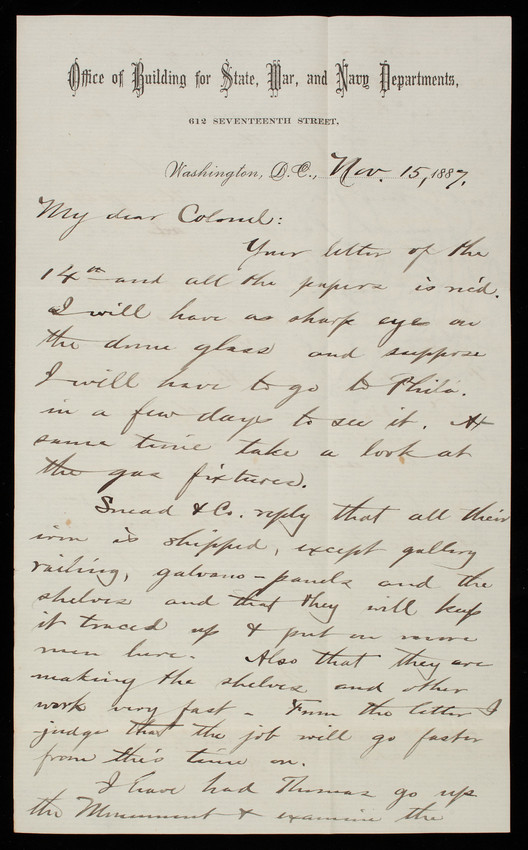 Office of Building for State, War, and Navy Departments,
612 SEVENTEENTH STREET,
Washington, D.C., Nov. 15, 1887.
My dear Colonel:
Your letter of the
14th and all the papers is rec'd.
I will have as sharp eyes on
the dome glass and suppose
I will have to go to Phila.
in a few days to see it. At
same time take a look at
the gas fixtures.
Snead & Co. reply that all their
iron is shipped, except gallery
railing, galvano-panels and the
shelves and that they will keep
it traced up & put on more
men here. Also that they are
making the shelves and other
work very fast - From the letter I
judge that the job will go faster
from this time on.
I have had Thomas go up
the Monument & examine the